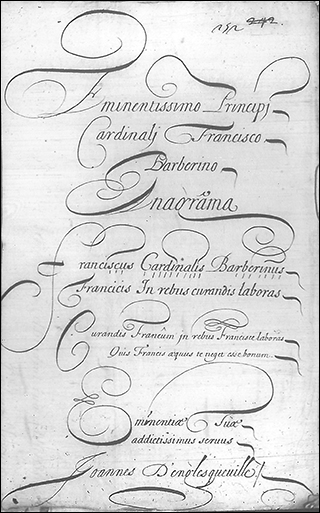 252 242
Eminentissimo Principj
Cardinalj Francisco
Barberino
Anagrãma
Franciscus Cardinalis Barberinus
Francicis In rebus curandis laboras
Curandis Francûm jn rebus Francisce laboras
Quis Francis æquus te neget esse bonum
Eminentiæ Tuæ
addictissimus seruus
Joannes D'englesqueuille